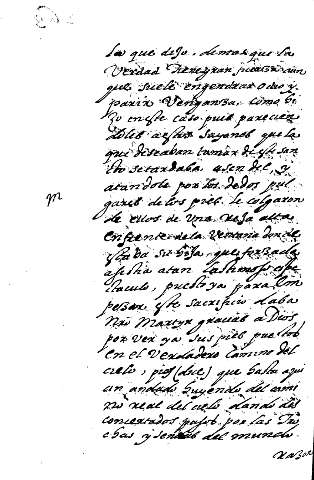 lo que dijo. demas que la
Verdad tiene gran fuerza aun
que suele engendrar odio y
parir Venganza, como hi
zo en este caso pues parecien
doles a estos sayones que la
que deseaban tomar de este san
to se tardaba asen del, y
atandole por los dedos pul
gares de los pies le colgaron
de ellos de Una reja alta
enfrente de la Ventana donde
estaba su hija, que forzada
asistia a tan lastimoso espe
taculo, puesto ya para em
pezar este sacrificio daba
Nro Martyr gracias a Dios
por ver ya sus pies puestos
en el Verdadero camino del
cielo, pies (dice) que hasta aqui
an andado huyendo del cami
no real del cielo dando des
concertados pasos por las Tro
chas y sendas del mundo
razon